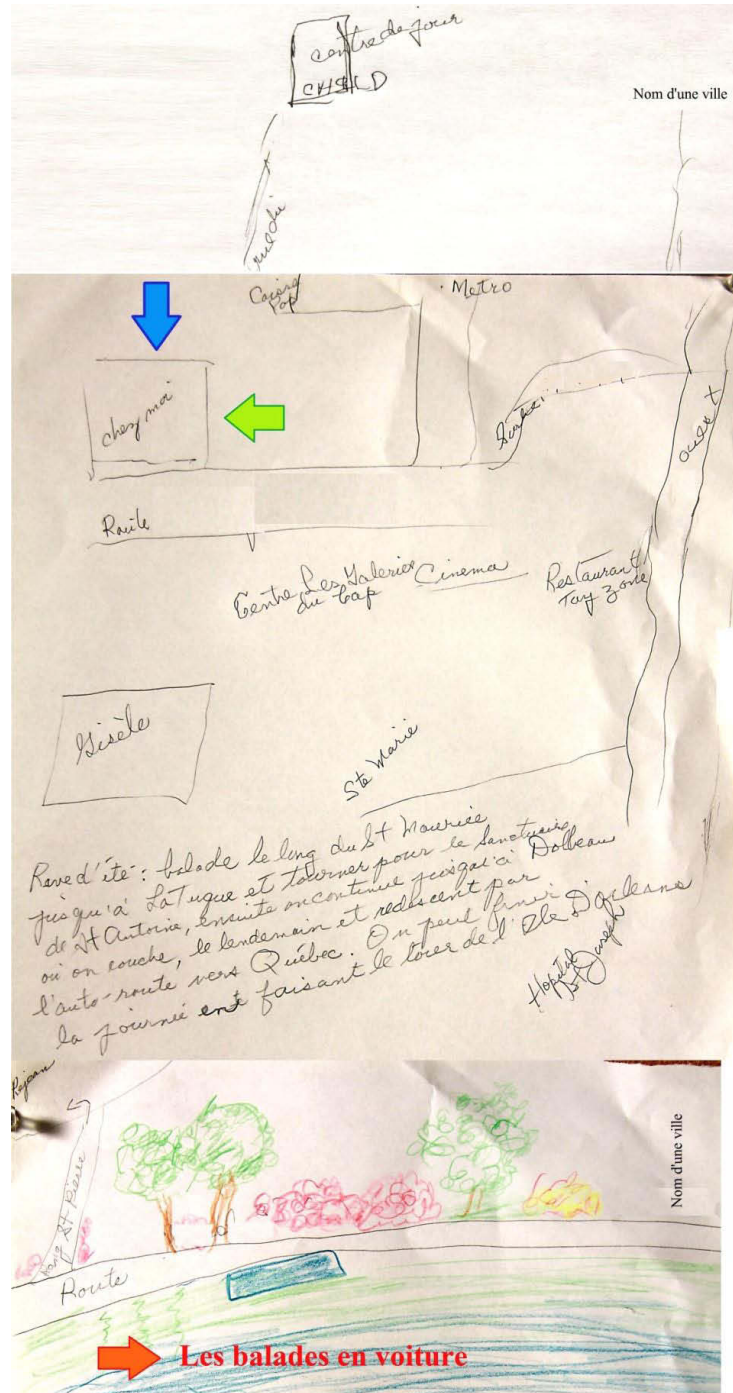 centre de jour
CHSLD
Nom d'une ville
rue du
Caisse
Pop
Metro
chez moi
Route
Centre Les Galeries
du Cap
Cinema
Restaurant
Tay zone
Gisèle
Ste Marie
Reve d'été : balade le long du St Maurice
jusqu'à LaTuque et tourner pour le Sanctuaire
de St Antoine, ensuite on continue jusqu'à Dolbeau
où on couche, le lendemain et redescent par
l'auto-route vers Québec. On peut finir
la journée ent faisant le tour de l'Ile D'Orleans
Hopital
St Joseph
Rejean
Rang St Pierre
Nom d'une ville
Route
Les balades en voiture